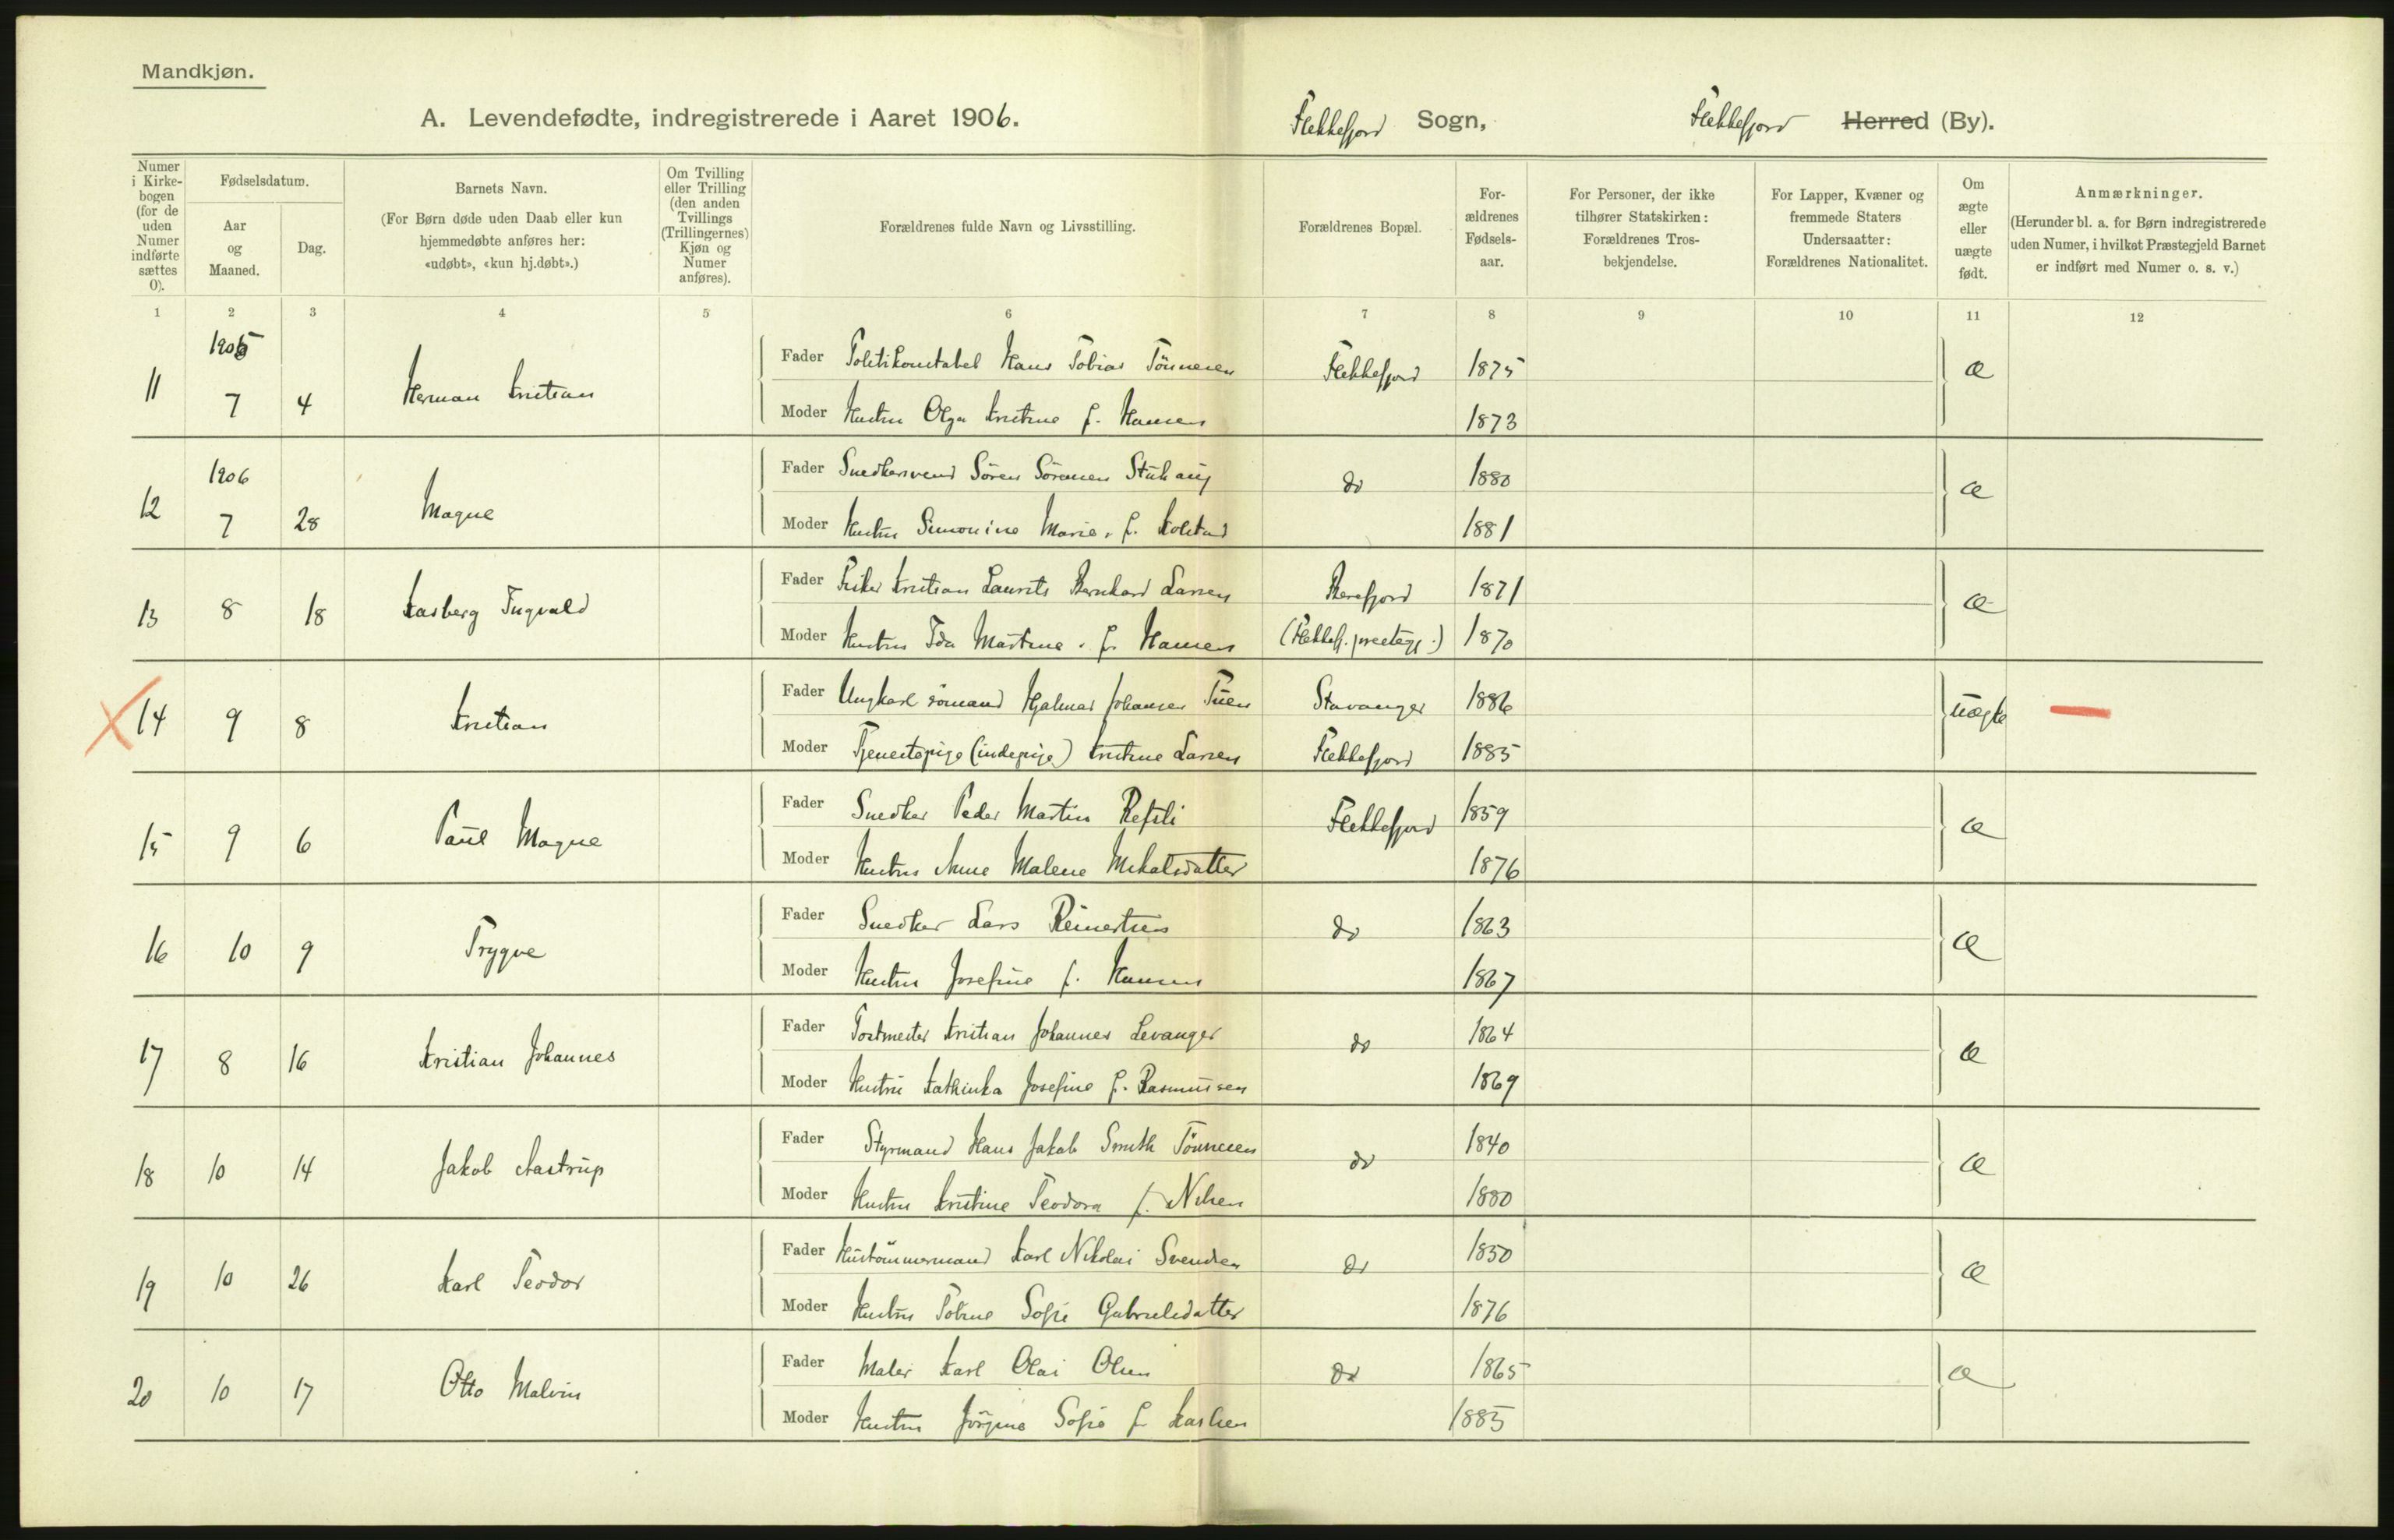 Mandkjøn.
A. Levendefødte, indregistrerede i Aaret 1906. Flekkefjord Sogn, Flekkefjord Herred (By).
Numer i Kirkebogen (for de uden Numer indførte sættes 0).
Fødselsdatum.
Aar og Maaned.
Dag.
Barnets Navn.
(For Børn døde uden Daab eller kun hjemmedøbte anføres her: «udøbt», «kun hj.døbt».)
Om Tvilling eller Trilling (den anden Tvillings (Trillingernes) Kjøn og Numer anføres).
Forældrenes fulde Navn og Livsstilling.
Forældrenes Bopæl.
Forældrenes Fødselsaar.
For Personer, der ikke tilhører Statskirken: Forældrenes Trosbekjendelse.
For Lapper, Kvæner og fremmede Staters Undersaatter: Forældrenes Nationalitet.
Om ægte eller uægte født.
Anmærkninger.
(Herunder bl. a. for Børn indregistrerede uden Numer, i hvilket Præstegjeld Barnet er indført med Numer o. s. v.)
1 2 3 4 5 6 7 8 9 10 11 12
1905
11 7 4 Herman Kristian
Fader Politikonstabel Hans Tobias Tönnesen Flekkefjord 1875 æ
Moder Hustru Olga Kristine f. Hansen 1873
1906
12 7 28 Magne
Fader Snedkersvend Sören Sörensen Stuhaug do 1880 æ
Moder Hustru Simonine Marie f. Kolstad 1881
13 8 18 Kasberg Ingvald
Fader Fisker Kristian Laurits Bernhard Larsen 1871 æ
Moder Hustru Ida Martine f. Hansen (Flekkefj. præstegj.) 1870
14 9 8 Kristian
Fader Ungkarl sömand Hjalmar Johansen Stavanger 1886 uægte
Moder Tjenestepige (indepige) Kristine Larsen Flekkefjord 1885
15 9 6 Paul Magne
Fader Snedker Peder Martin Refsli Flekkefjord 1859 æ
Moder Hustru Anne Malene Mikalsdatter 1876
16 10 9 Trygve
Fader Snedker Lars Reinertsen do 1863 æ
Moder Hustru Josefine f. Hansen 1867
17 8 16 Kristian Johannes
Fader Postmester Kristian Johannes Levanger do 1864 æ
Moder Hustru Kathinka Josefine f. Rasmussen 1869
18 10 14 Jakob Aastrup
Fader Styrmand Hans Jakob Smith Tönnesen do 1840 æ
Moder Hustru Kristine Teodora f. Nilsen 1880
19 10 26 Karl Teodor
Fader Hustömmermand Karl Nikolai Svendsen do 1850 æ
Moder Hustru Tobine Sofie Gabrielsdatter 1876
20 10 17 Otto Malvin
Fader Maler Karl Olai Olsen do 1865 æ
Moder Hustru Jörgine Sofie f. Karlsen 1885